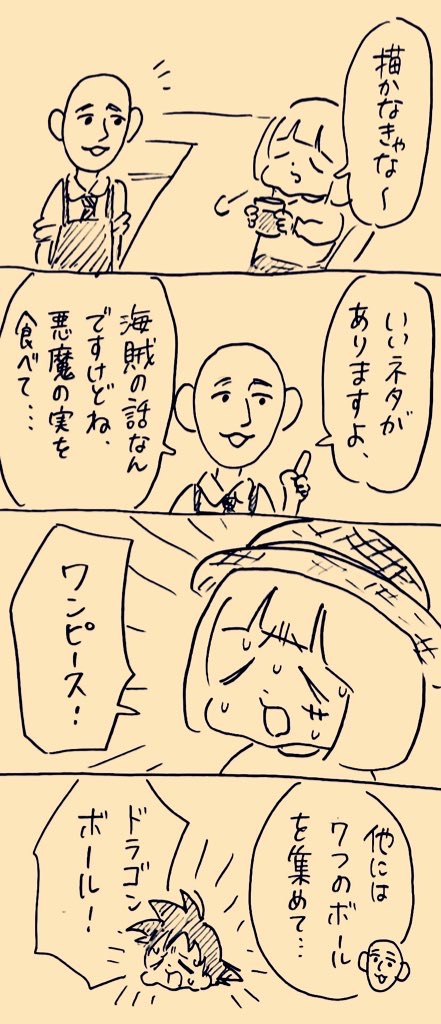 描かなきゃな〜
いいネタが
ありますよ、
海賊の話なん
ですけどね、
悪魔の実を
食べて…
ワンピース!
他には
7つのボール
を集めて…
ドラゴン
ボール!